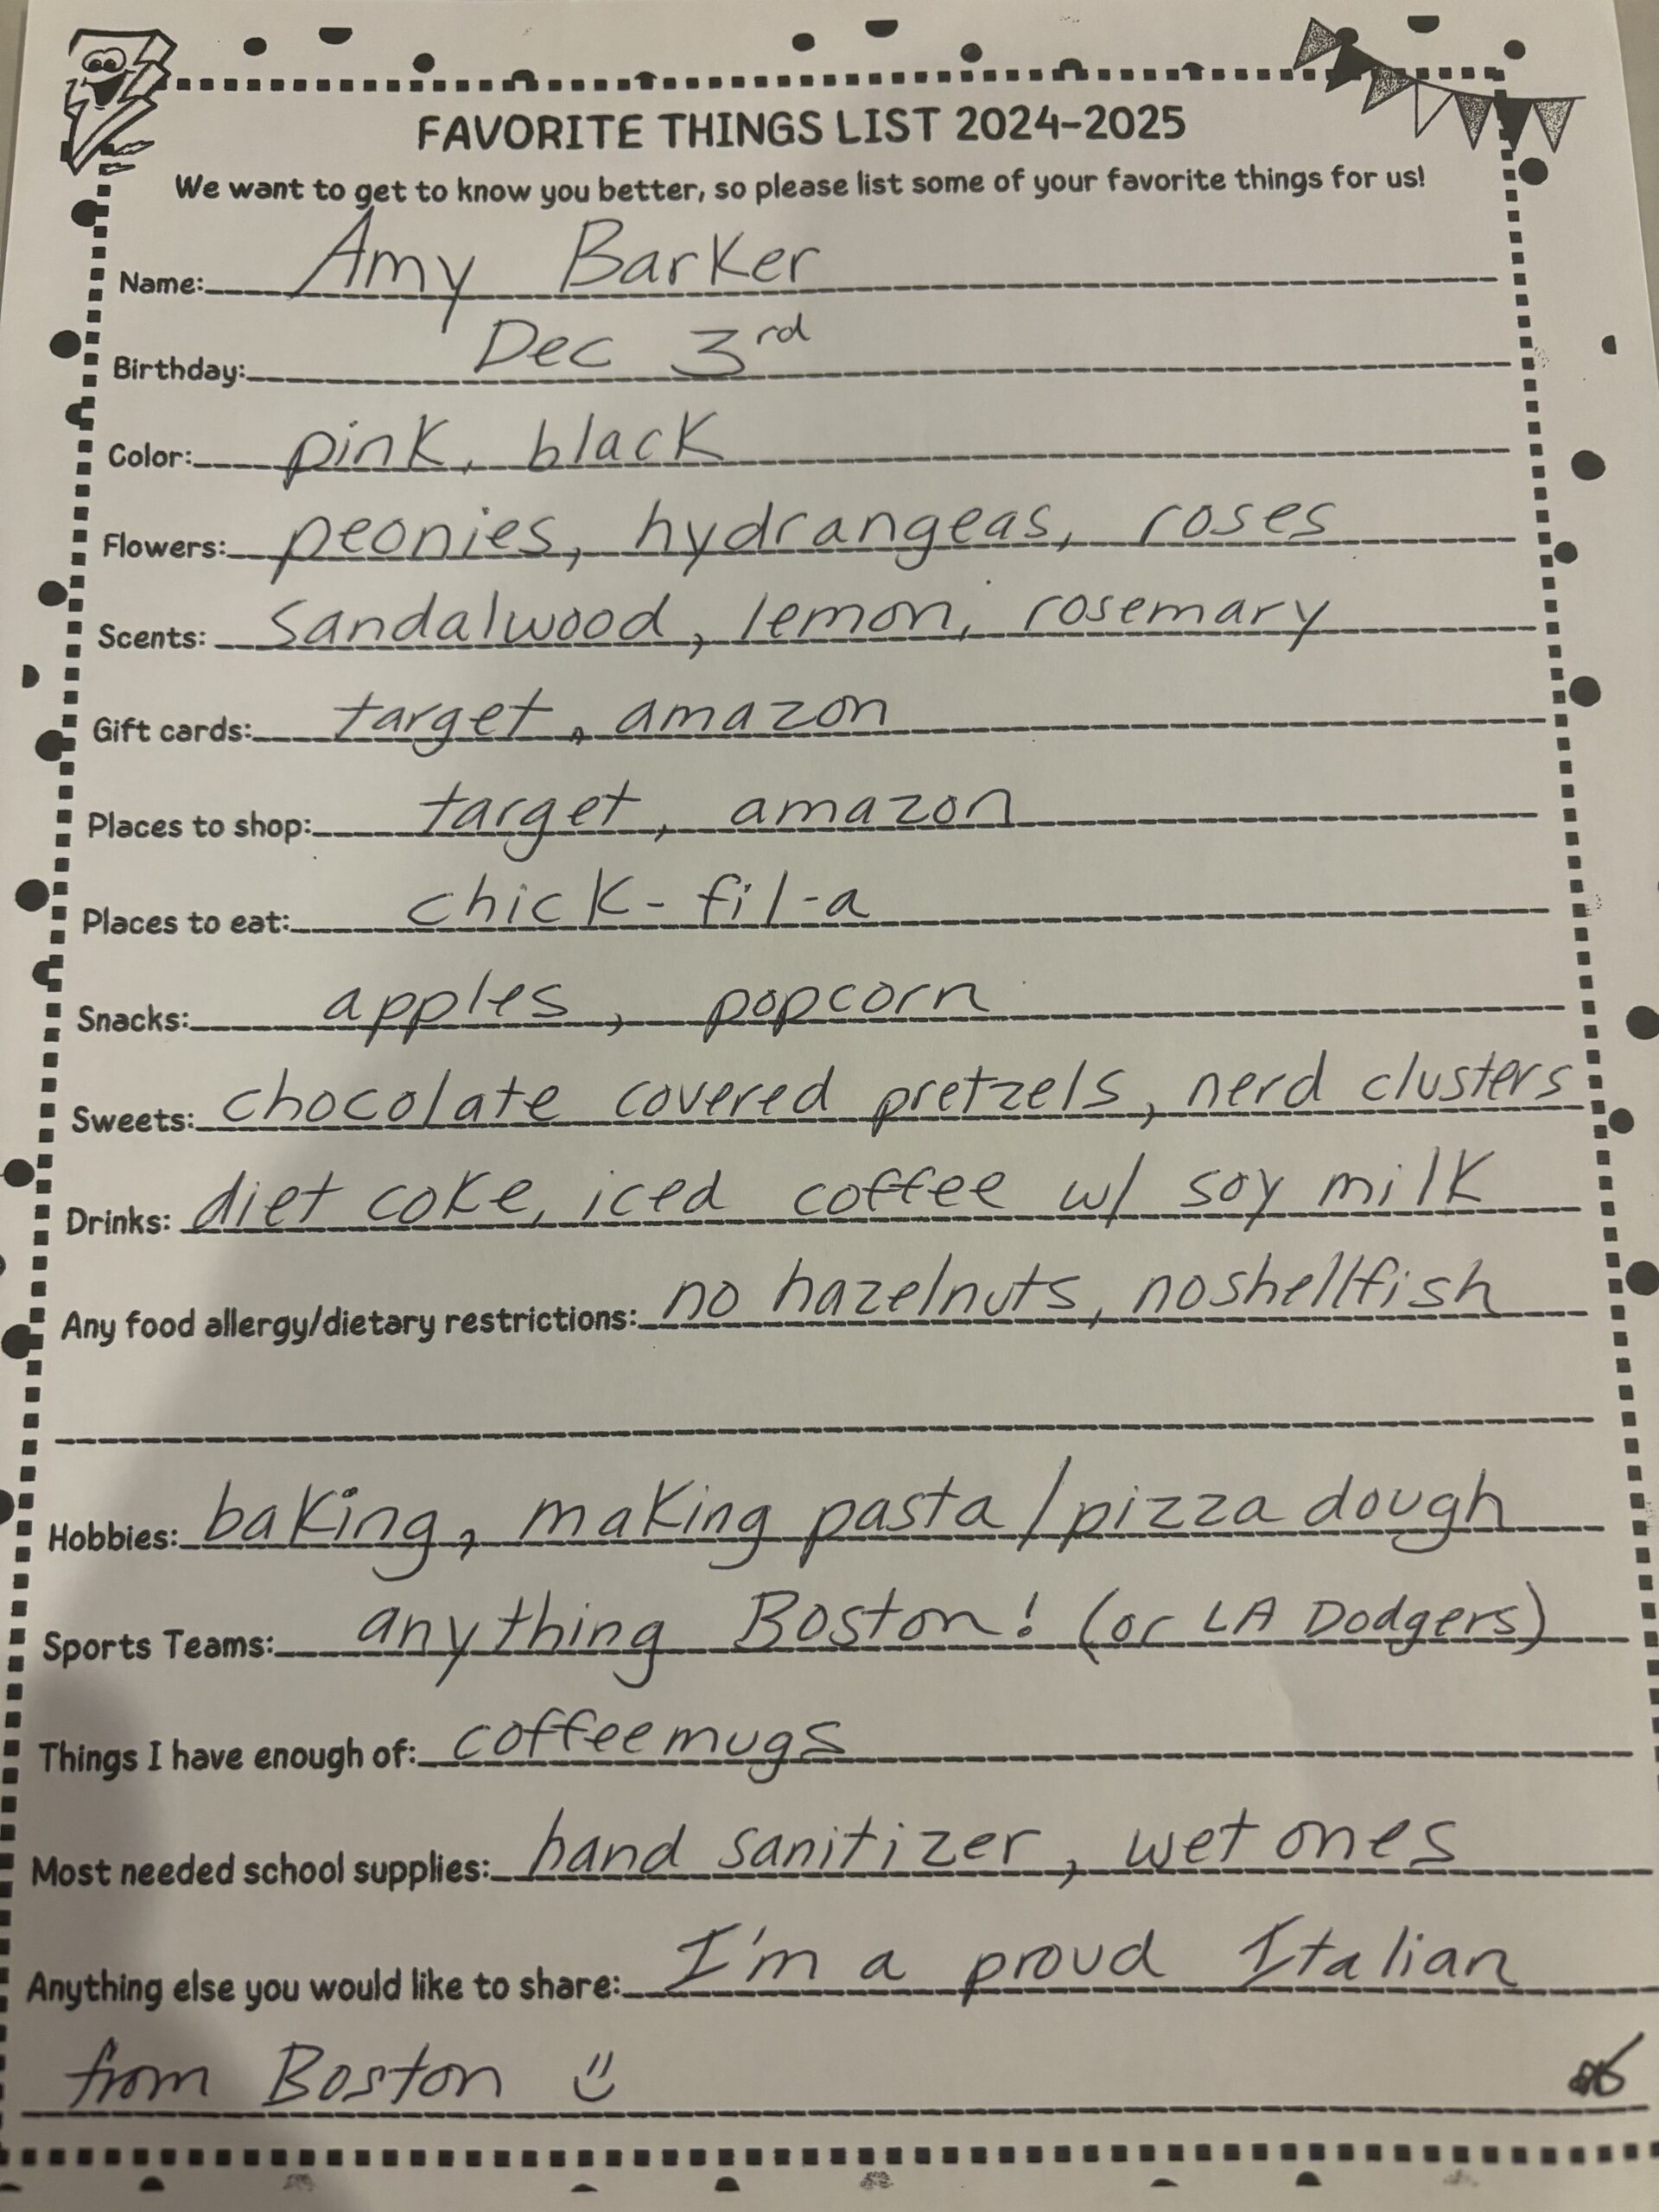 FAVORITE THINGS LIST 2024-2025
We want to get to know you better, so please list some of your favorite things for us!
Name: Amy Barker
Birthday: Dec 3rd
Color: pink, black
Flowers: peonies, hydrangeas, roses
Scents: sandalwood, lemon, rosemary
Gift cards: target, amazon
Places to shop: target, amazon
Places to eat: chick-fil-a
Snacks: apples, popcorn
Sweets: chocolate covered pretzels, nerd clusters
Drinks: diet coke, iced coffee w/ soy milk
Any food allergy/dietary restrictions: no hazelnuts, no shellfish
Hobbies: baking, making pasta/pizza dough
Sports Teams: anything Boston! (or LA Dodgers)
Things I have enough of: coffee mugs
Most needed school supplies: hand sanitizer, wet ones
Anything else you would like to share: I'm a proud Italian
from Boston